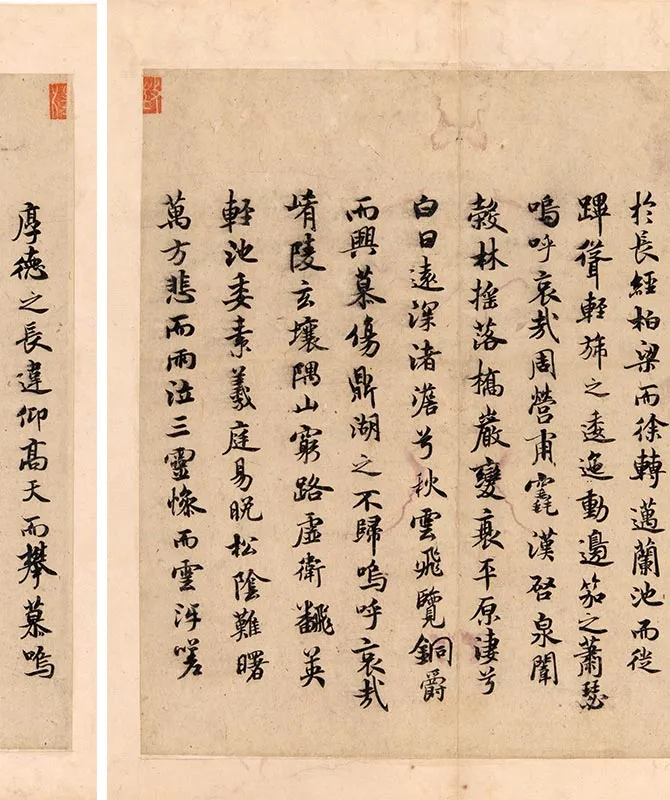 於長經柏梁而徐轉邁蘭池而徙
蹕聳輕旆之逶迤動邊笳之蕭瑟
嗚呼哀哉周營甫竁漢啓泉闈
穀林搖落橋巖變衰平原淒兮
白日遠深渚澹兮秋雲飛覽銅爵
而興慕傷鼎湖之不歸嗚呼哀哉
崤陵玄壤隅山窮路虛衛飜英
輕池委素羲庭易晚松陰難曙
萬方悲而雨泣三靈慘而雲沍嗟
厚德之長違仰高天而攀慕嗚